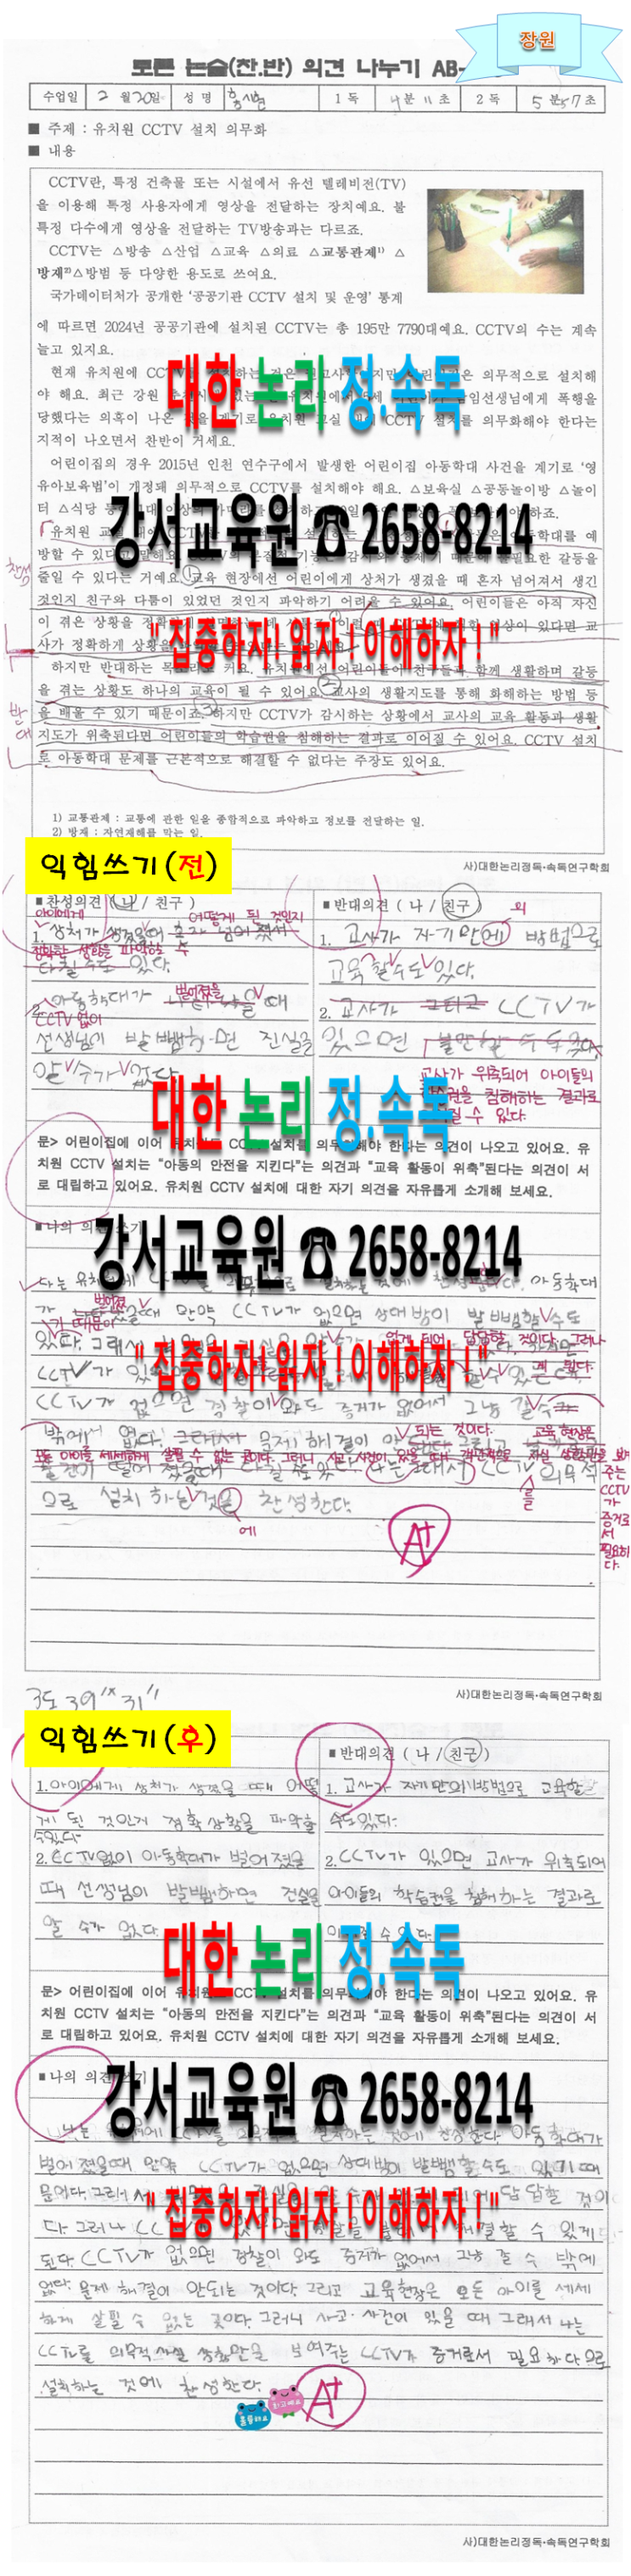 장원
토론 논술(찬.반) 의견 나누기 AB-
수업일 2 월 20일 성 명 1 독 4 분 11 초 2 독 5 분 57 초
■ 주제 : 유치원 CCTV 설치 의무화
■ 내용
CCTV란, 특정 건축물 또는 시설에서 유선 텔레비전(TV)
을 이용해 특정 사용자에게 영상을 전달하는 장치예요. 불
특정 다수에게 영상을 전달하는 TV방송과는 다르죠.
CCTV는 △방송 △산업 △교육 △의료 △교통관제1) △
방재2)△방범 등 다양한 용도로 쓰여요.
국가데이터처가 공개한 ‘공공기관 CCTV 설치 및 운영’ 통계
에 따르면 2024년 공공기관에 설치된 CCTV는 총 195만 7790대예요. CCTV의 수는 계속
늘고 있지요.
현재 유치원에 CCTV를 설치하는 것은 의무적으로 설치해
대한 논리 정.속독
야 해요. 최근 강원 유치원에서 5세 담임선생님에게 폭행을
당했다는 의혹이 나온 것을 계기로 유치원 교실 CCTV 설치를 의무화해야 한다는
지적이 나오면서 찬반이 거세요.
어린이집의 경우 2015년 인천 연수구에서 발생한 어린이집 아동학대 사건을 계기로 ‘영
유아보육법’이 개정돼 의무적으로 CCTV를 설치해야 해요. △보육실 △공동놀이방 △놀이
터 △식당 등 하죠.
강서교육원 ☎ 2658-8214
유치원 교실 아동학대를 예
방할 수 있다고 말해요. CCTV의 본질적 기능은 감시와 통제기 때문에 불필요한 갈등을
줄일 수 있다는 거예요. 교육 현장에선 어린이에게 상처가 생겼을 때 혼자 넘어져서 생긴
것인지 친구와 다툼이 있었던 것인지 파악하기 어려울 수 있어요. 어린이들은 아직 자신
이 겪은 상황을 정확하게 영상이 있다면 교
사가 정확하게 상황을
"집중하자! 읽자! 이해하자!"
하지만 반대하는 목소리도 커요. 유치원에선 어린이들이 친구들과 함께 생활하며 갈등
을 겪는 상황도 하나의 교육이 될 수 있어요. 교사의 생활지도를 통해 화해하는 방법 등
을 배울 수 있기 때문이죠. 하지만 CCTV가 감시하는 상황에서 교사의 교육 활동과 생활
지도가 위축된다면 어린이들의 학습권을 침해하는 결과로 이어질 수 있어요. CCTV 설치
로 아동학대 문제를 근본적으로 해결할 수 없다는 주장도 있어요.
찬성
반대
1) 교통관제 : 교통에 관한 일을 종합적으로 파악하고 정보를 전달하는 일.
2) 방재 : 자연재해를 막는 일.
사)대한논리정독·속독연구학회
익힘쓰기(전)
■ 찬성의견 ( 나 / 친구 )
아이에게 어떻게 된 것인지
1. 상처가 생겼을 때 혼자 넘어졌서
정확한 상황을 파악할 수
다칠수도 있다.
벌어졌을
2. 아동학대가 때
CCTV 없이
선생님이 발뺌하면 진실을
알 수가 없다
■ 반대의견 ( 나 / 친구 )
의
1. 교사가 자기만에 방법으로
교육할수도 있다.
2. 교사가 CCTV가
있으면
교사가 위축되어 아이들의
학습권을 침해하는 결과로
수 있다.
대한 논리 정.속독
문> 어린이집에 이어 유치원도 CCTV 설치를 의무화해야 한다는 의견이 나오고 있어요. 유
치원 CCTV 설치는 “아동의 안전을 지킨다”는 의견과 “교육 활동이 위축”된다는 의견이 서
로 대립하고 있어요. 유치원 CCTV 설치에 대한 자기 의견을 자유롭게 소개해 보세요.
■ 나의 의견 쓰기
강서교육원 ☎ 2658-8214
나는 유치원에 찬성 아동학대
가 벌어졌 때 만약 CCTV가 없으면 상대방이 발뺌할 수도
기 때문이
있다. 그래서 없게 되어 답답할 것이다. 그러나
"집중하자! 읽자! 이해하자!"
CCTV가 게 된다.
CCTV가 없으면 경찰이 와도 증거가 없어서 그냥 갈 수가
되는 것이다. 교육 현장은
밖에 없다. 그래서 문제 해결이 안
모든 아이를 세세하게 살필 수 없는 곳이다. 그러니 사고·사건이 있을 때 객관적으로 사실 상황만을 보여
주는 CCTV가 증거로서 필요하다.
CCTV 의무적
를
으로 설치하는 것을 찬성한다.
에
A+
사)대한논리정독·속독연구학회
3도 39"× 31"
익힘쓰기(후)
1. 아이에게 상처가 생겼을 때 어떻
게 된 것인게 정확 상황을 파악할
수있다
2. CCTV없이 아동학대가 벌어졌을
때 선생님이 발뺌하면 진실을
알 수가 없다.
■ 반대의견 ( 나 / 친구 )
1. 교사가 자기만의 방법으로 교육할
수도있다.
2. CCTV가 있으면 교사가 위축되어
아이들의 학습권을 침해하는 결과로
수 있다.
대한 논리 정.속독
문> 어린이집에 이어 유치원도 CCTV 설치를 의무화해야 한다는 의견이 나오고 있어요. 유
치원 CCTV 설치는 “아동의 안전을 지킨다”는 의견과 “교육 활동이 위축”된다는 의견이 서
로 대립하고 있어요. 유치원 CCTV 설치에 대한 자기 의견을 자유롭게 소개해 보세요.
■ 나의 의견 쓰기
강서교육원 ☎ 2658-8214
나는 유치원에 CCTV를 설치하는 것에 찬성한다. 아동학대가
벌어졌을때 만약 CCTV가 없으면 상대방이 발뺌할 수도 있기 때
문이다. 그래서 답답할 것이
"집중하자! 읽자! 이해하자!"
다. 그러나 해결할 수 있게
된다. CCTV가 없으면 경찰이 와도 증거가 없어서 그냥 갈 수 밖에
없다. 문제 해결이 안되는 것이다. 그리고 교육현장은 모든 아이를 세세
하게 살필 수 없는 곳이다. 그러니 사고·사건이 있을 때 그래서 나는
CCTV를 의무적 사실 상황만을 보여주는 CCTV가 증거로서 필요하다으로
설치하는 것에 찬성한다.
A+
사)대한논리정독·속독연구학회